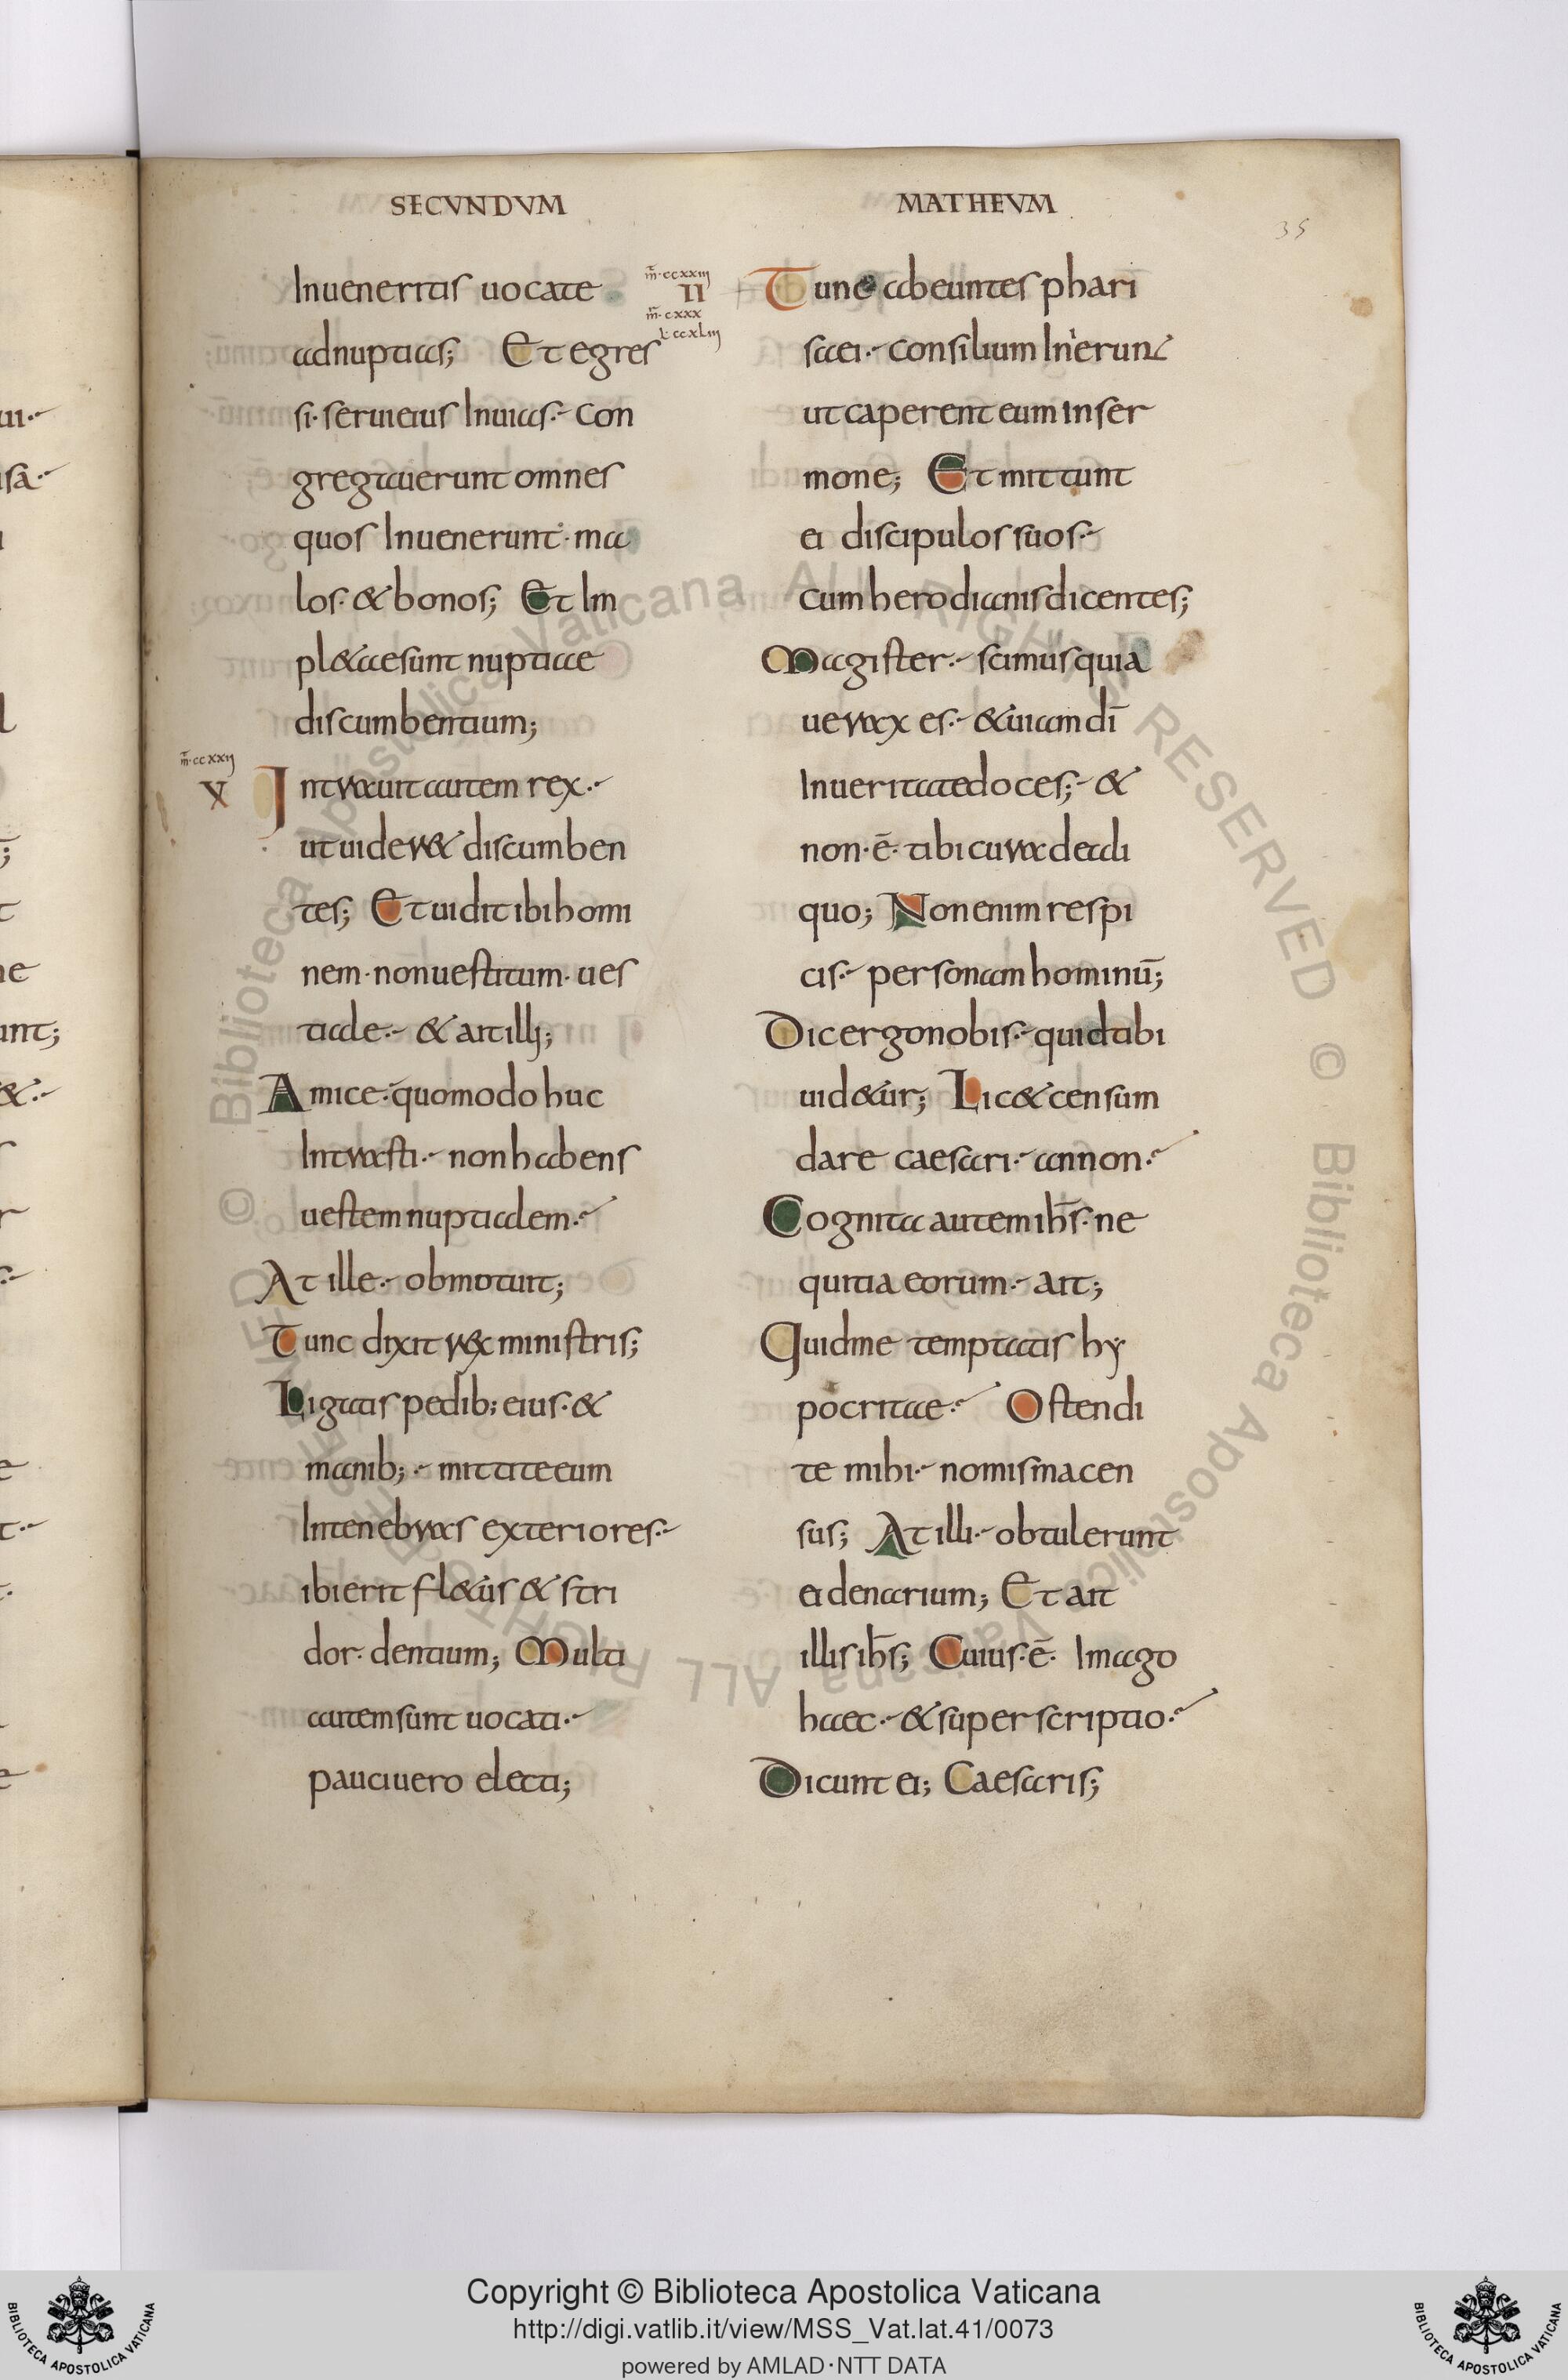 SECVNDVM
Inueneritis uocate
adnuptias; Et egres
si· serui eius Inuias·- con
gregauerunt omnes
quos Inuenerunt· ma
los· & bonos; Et Im
pl&ae sunt nuptiae
discumbentium;
m̄·ccxxıȷ
X
Intrauit autem rex·-
ut uider& discumben
tes; Et uidit ibi homi
nem· non uestitum· ues
tiale·- & ait illj;
Amice·- quomodo huc
Intrasti·- non habens
uestem nuptialem·-
At ille·- obmotuit;
Tunc dixit rex ministris;
Ligatis pedib; eius· &
manib;·- mittite eum
In tenebras exteriores·-
ibi erit fl&us & stri
dor· dentium; Multi
autem sunt uocati·-
pauci uero electi;
MATHEVM
35
m̄·ccxxııȷ
II
m̄·cxxx
L·ccxlııȷ
Tunc abeuntes phari
saei·- consilium Inierunt
ut caperent eum in ser
mone; Et mittunt
ei discipulos suos·-
cum herodianis dicentes;
Magister·- scimus quia
uerax es·- & uiam dī
In ueritate doces;- &
non· ē· tibi cura de ali
quo; Non enim respi
cis·- personam hominū;
Dic ergo nobis·- quid tibi
uid&ur; Lic& censum
dare caesari·- an non·-
Cognita autem ih̄s· ne
quitia eorum·- ait;
Quid me temptatis hy
pocritae·- Ostendi
te mihi·- nomisma cen
sus; At illi·- obtulerunt
ei denarium; Et ait
illis ih̄s; Cuius· ē· Imago
haec·- & superscriptio·-
Dicunt ei; Caesaris;
© Biblioteca Apostolica Vaticana ALL RIGHTS RESERVED © Biblioteca Apostolica Vaticana ALL RIGHTS RESERVED
Copyright © Biblioteca Apostolica Vaticana
http://digi.vatlib.it/view/MSS_Vat.lat.41/0073
powered by AMLAD·NTT DATA
BIBLIOTECA APOSTOLICA VATICANA
BIBLIOTECA APOSTOLICA VATICANA